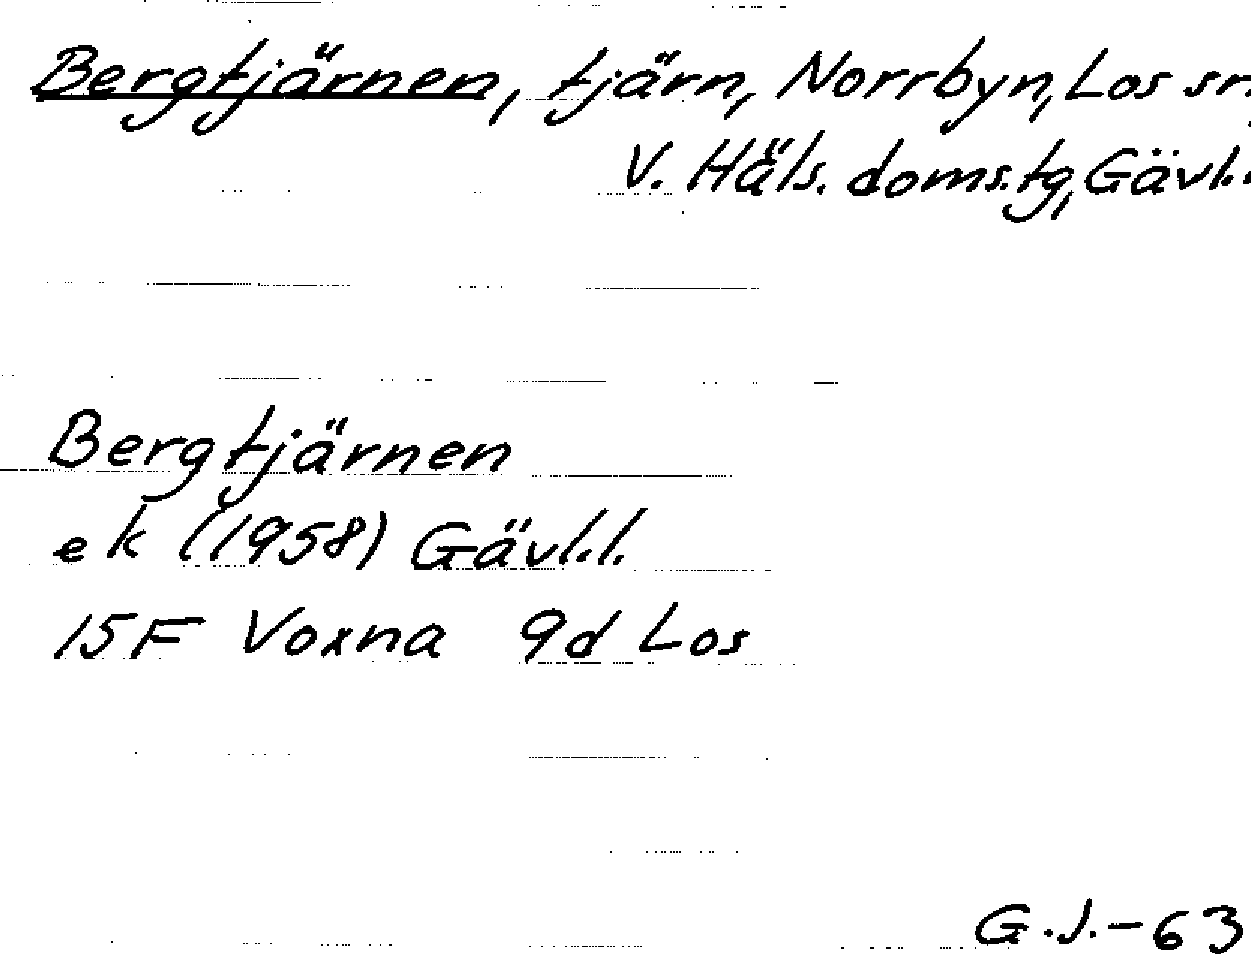 Bergtjärnen, tjärn, Norrbyn, Los sn,
V. Häls. doms.tg, Gävl.l.
Bergtjärnen
ek (1958) Gävl.l.
15F Voxna 9d Los
G.J.-63